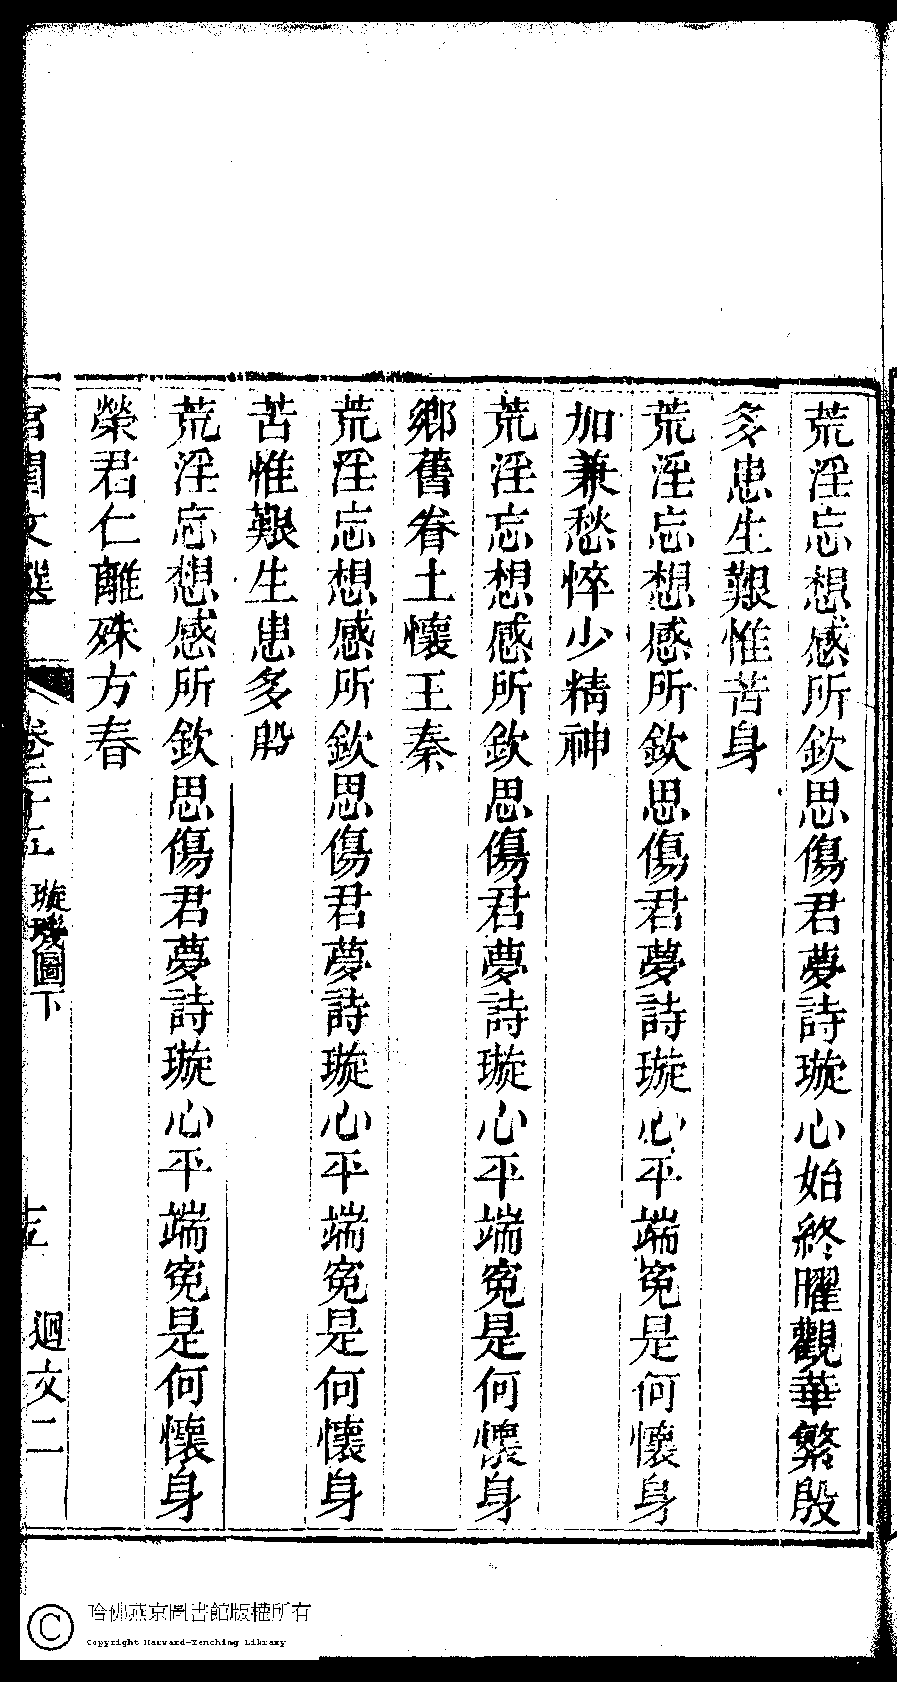 荒淫忘想感所欽思傷君夢詩璇心始終曜觀華繁殷
多患生艱惟苦身
荒淫忘想感所欽思傷君夢詩璇心平端寃是何懷身
加兼愁悴少精神
荒淫忘想感所欽思傷君夢詩璇心平端寃是何懷身
鄉舊眷土懷王秦
荒淫忘想感所欽思傷君夢詩璇心平端寃是何懷身
苦惟艱生患多殷
荒淫忘想感所欽思傷君夢詩璇心平端寃是何懷身
榮君仁離殊方春
宮閨文選 卷二十五 璇璣圖下 迴文二
哈佛燕京圖書館版權所有
Copyright Harvard-Yenching Library